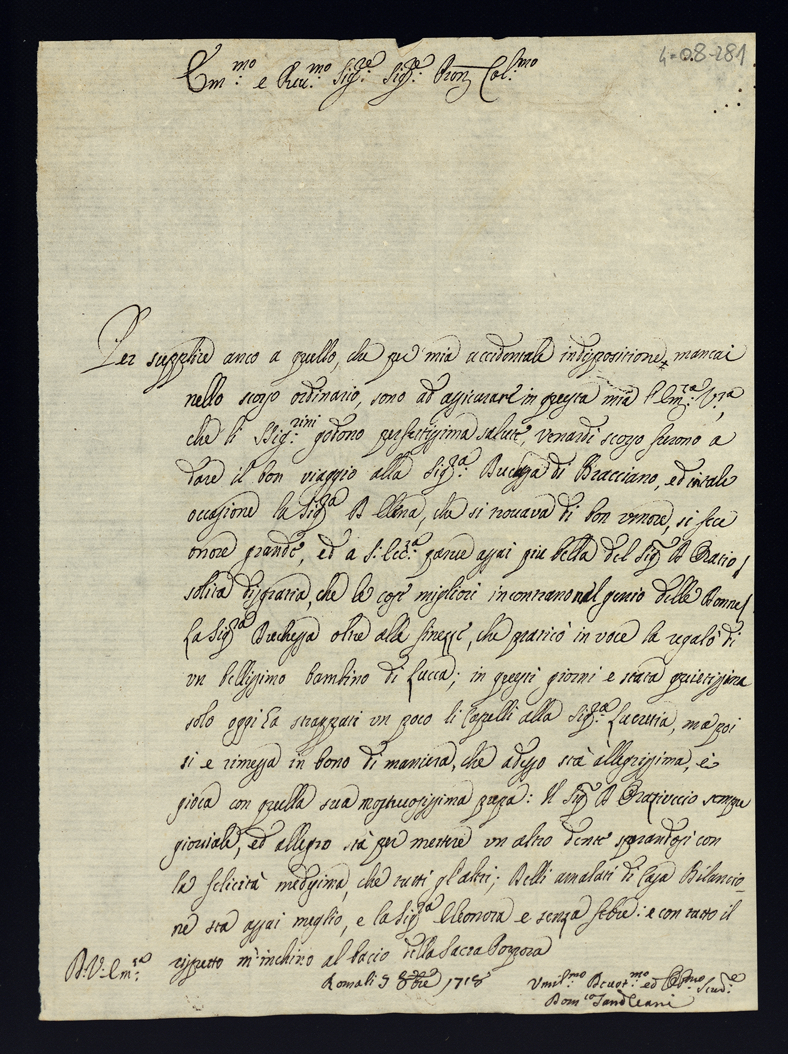 4-08-281
Em.mo e Reu.mo Sig.re Sig.re Pron Col.mo
Per supplire anco a quello, che per mia accidentale indispositione mancai
nello scorso ordinario, sono ad assicurare in questa mia l'Em.za V.ra
che li SSig.rini godono perfettissima salute, venardi scorso furono a
dare il bon viaggio alla Sig.ra Duchessa di Bracciano, ed in tale
occasione la Sig.ra D Elena, che si trouava di bon umore, si fece
onore grande, ed a S: Ecc.za parue assai più bella del Sig.r D Oratio/
solita disgratia, che le cose migliori incontrano nel genio delle Donne/
La Sig.ra Duchessa oltre alle finezze, che praticò in voce la regalò di
vn bellissimo bambino di Lucca; in questi giorni e stata quietissima
solo oggi ha strazzati vn poco li Capelli alla Sig.ra Lucretia, ma poi
si e rimessa in bono di maniera, che adesso stà allegrissima, e
gioca con quella sua mostruosissima pupa: Il Sig.r D Oratiuccio sempre
giouiale, ed allegro stà per mettere vn altro dente sperandosi con
la felicità medesima, che tutti gl'altri; Delli amalati di Casa Bilancio-
ne sta assai meglio, e la Sig.ra Eleonora e senza febre: e con tutto il
rispetto m'inchino al bacio della Sacra Porpora
D. V. Em.za
Roma li 8bre 1718
Vmil.mo Deuot.mo ed Obl.mo Seru.e
Dom.co